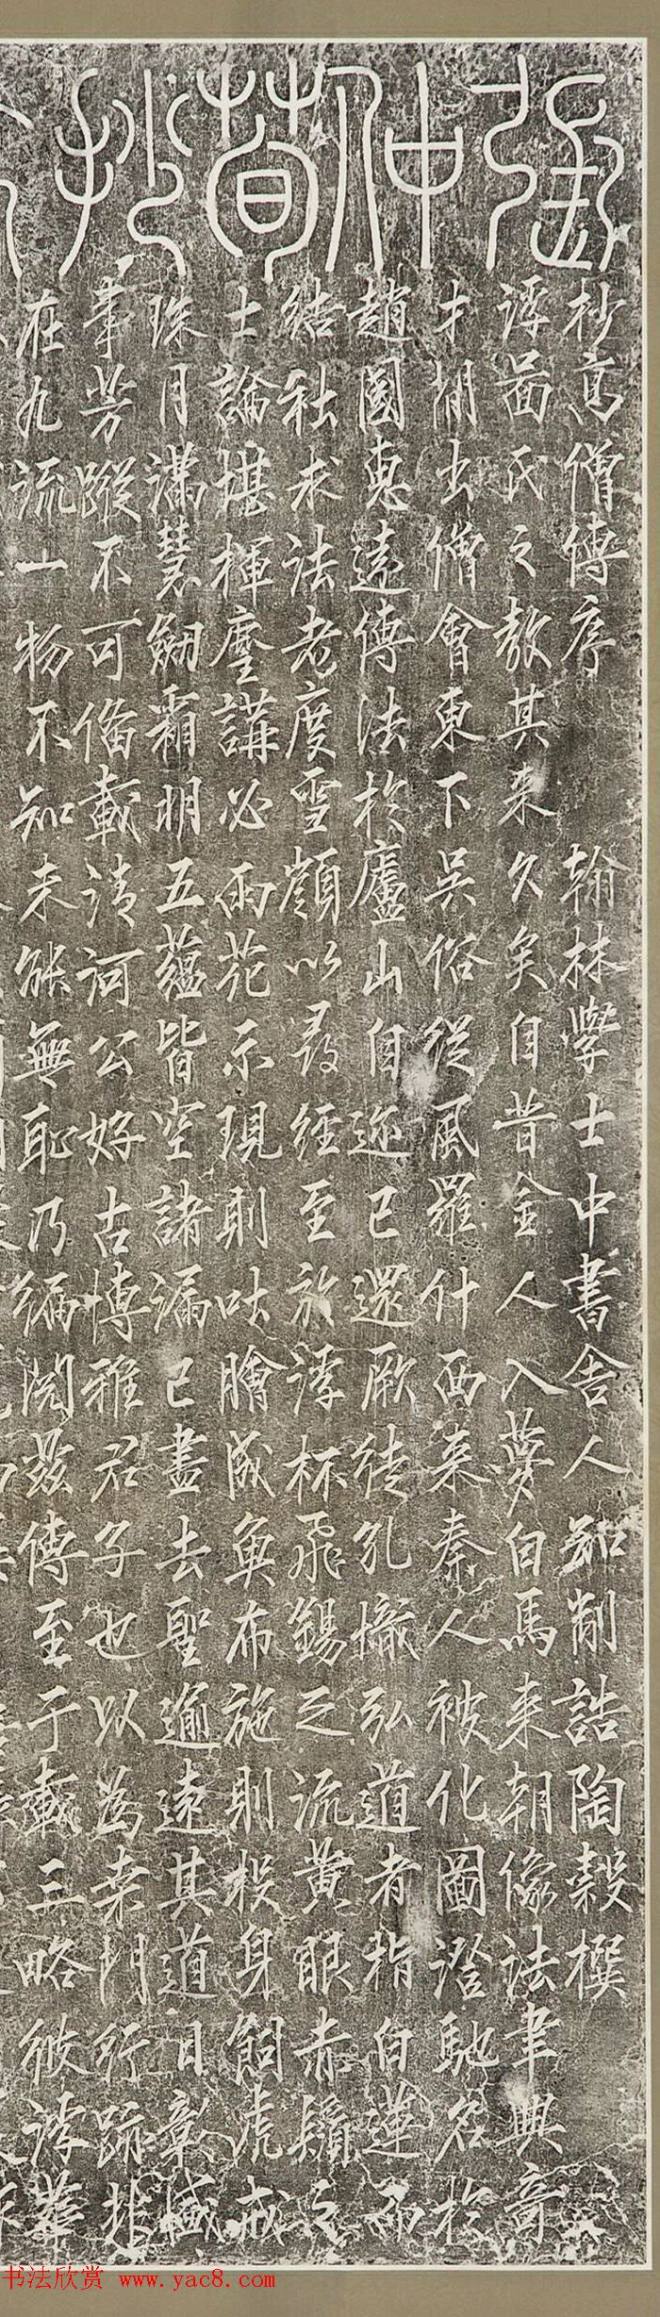 張仲荀抄
抄高僧傳序 翰林學士中書舍人知制誥陶穀撰
浮啚氏之教其来久矣自昔金人入夢白馬来朝像法聿興竒
才間出僧會東下吳俗從風羅什西来秦人被化圖澄馳名於
趙國惠遠傳法於廬山自迩已還厥徒孔熾弘道者指白蓮而
結社求法者度雪嶺以尋經至於浮杯飛錫之流黃眼赤鬚之
士論堪揮麈講必雨花示現則吐膾成魚布施則投身飼虎戒
珠月滿慧劒霜明五蘊皆空諸漏已盡去聖逾遠其道日彰盛
事芳蹤不可備載清河公好古博雅君子也以為桑門行跡非
在九流一物不知未能無恥乃徧閱茲傳至于載三略彼浮華
书法欣赏 www.yac8.com